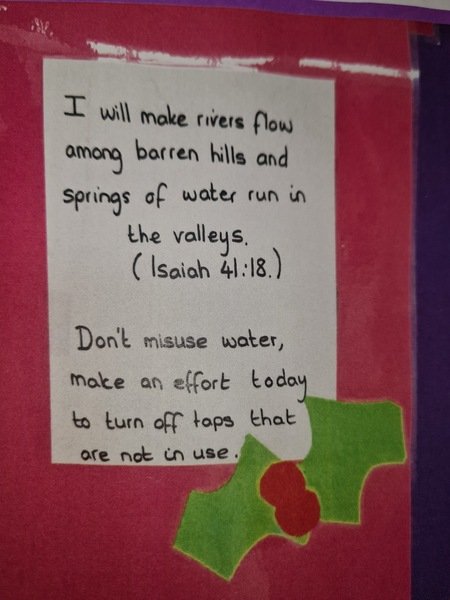 I will make rivers flow
among barren hills and
springs of water run in
the valleys.
( Isaiah 41:18.)
Don't misuse water,
make an effort today
to turn off taps that
are not in use.